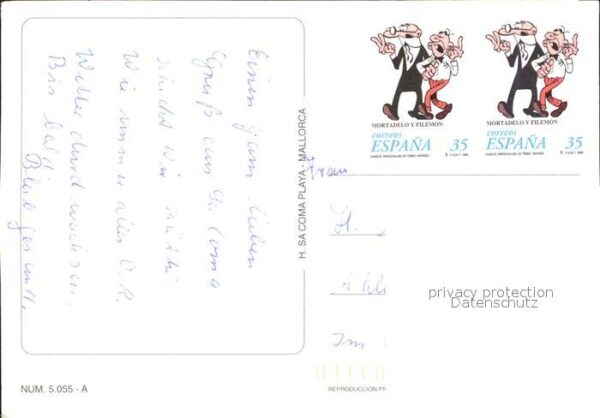 Einen ganz lieben
Gruß aus Sa Coma
schickt Dir
Wie immer alles O.K.
Wetter durchwachsen.
Bis bald!
Bleib gesund!
H. SA COMA PLAYA - MALLORCA
NUM. 5.055 - A
MORTADELO Y FILEMÓN
correos
ESPAÑA 35
MORTADELO Y FILEMÓN
correos
ESPAÑA 35
Frau
H.
Im
privacy protection
Datenschutz
REPRODUCCION PR